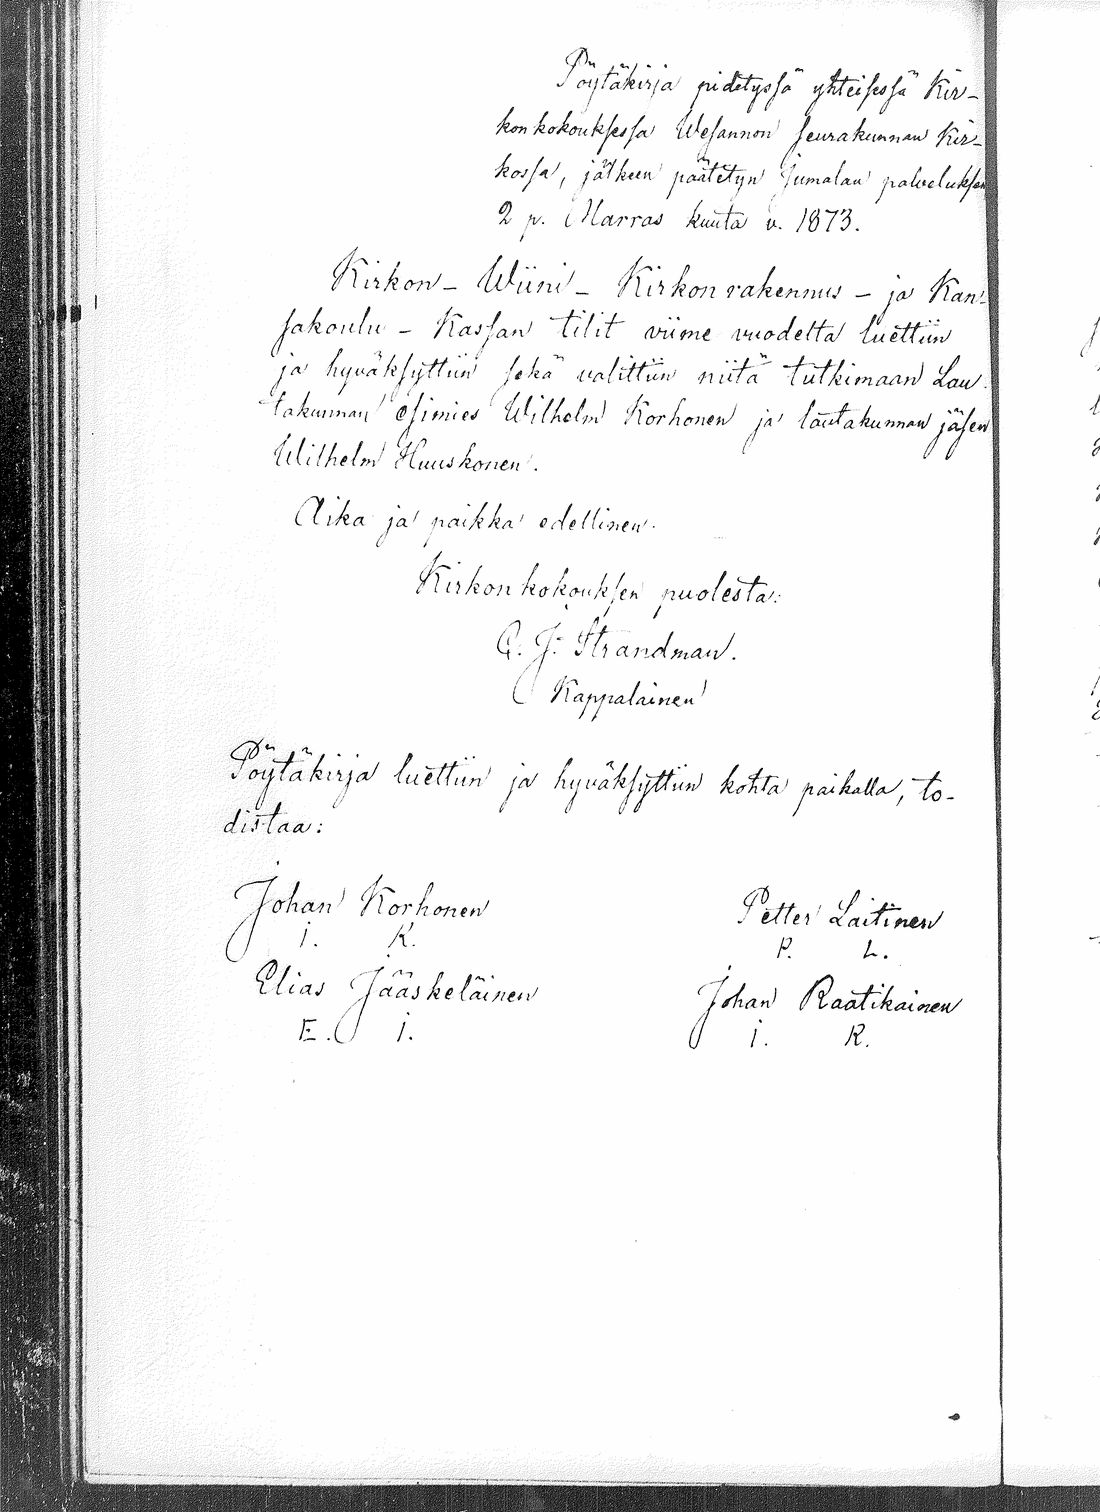 Pöytäkirja pidetyssä yhteisessä Kir-
konkokouksessa Wesannon seurakunnan Kir-
kossa, jälkeen päätetyn Jumalan palveluksen
2 p. Marras kuuta v. 1873.
Kirkon- Wiini- Kirkonrakennus- ja Kan-
sakoulu- Kassan tilit viime vuodelta luettiin
ja hyväksyttiin sekä valittiin niitä tutkimaan Lau-
takunnan esimies Wilhelm Korhonen ja lautakunnan jäsen
Wilhelm Huuskonen.
Aika ja paikka edellinen.
Kirkonkokouksen puolesta:
G. J. Strandman.
Kappalainen
Pöytäkirja luettiin ja hyväksyttiin kohta paikalla, to-
distaa:
Johan Korhonen
I. K.
Petter Laitinen
P. L.
Elias Jääskeläinen
E. I.
Johan Raatikainen
I. R.